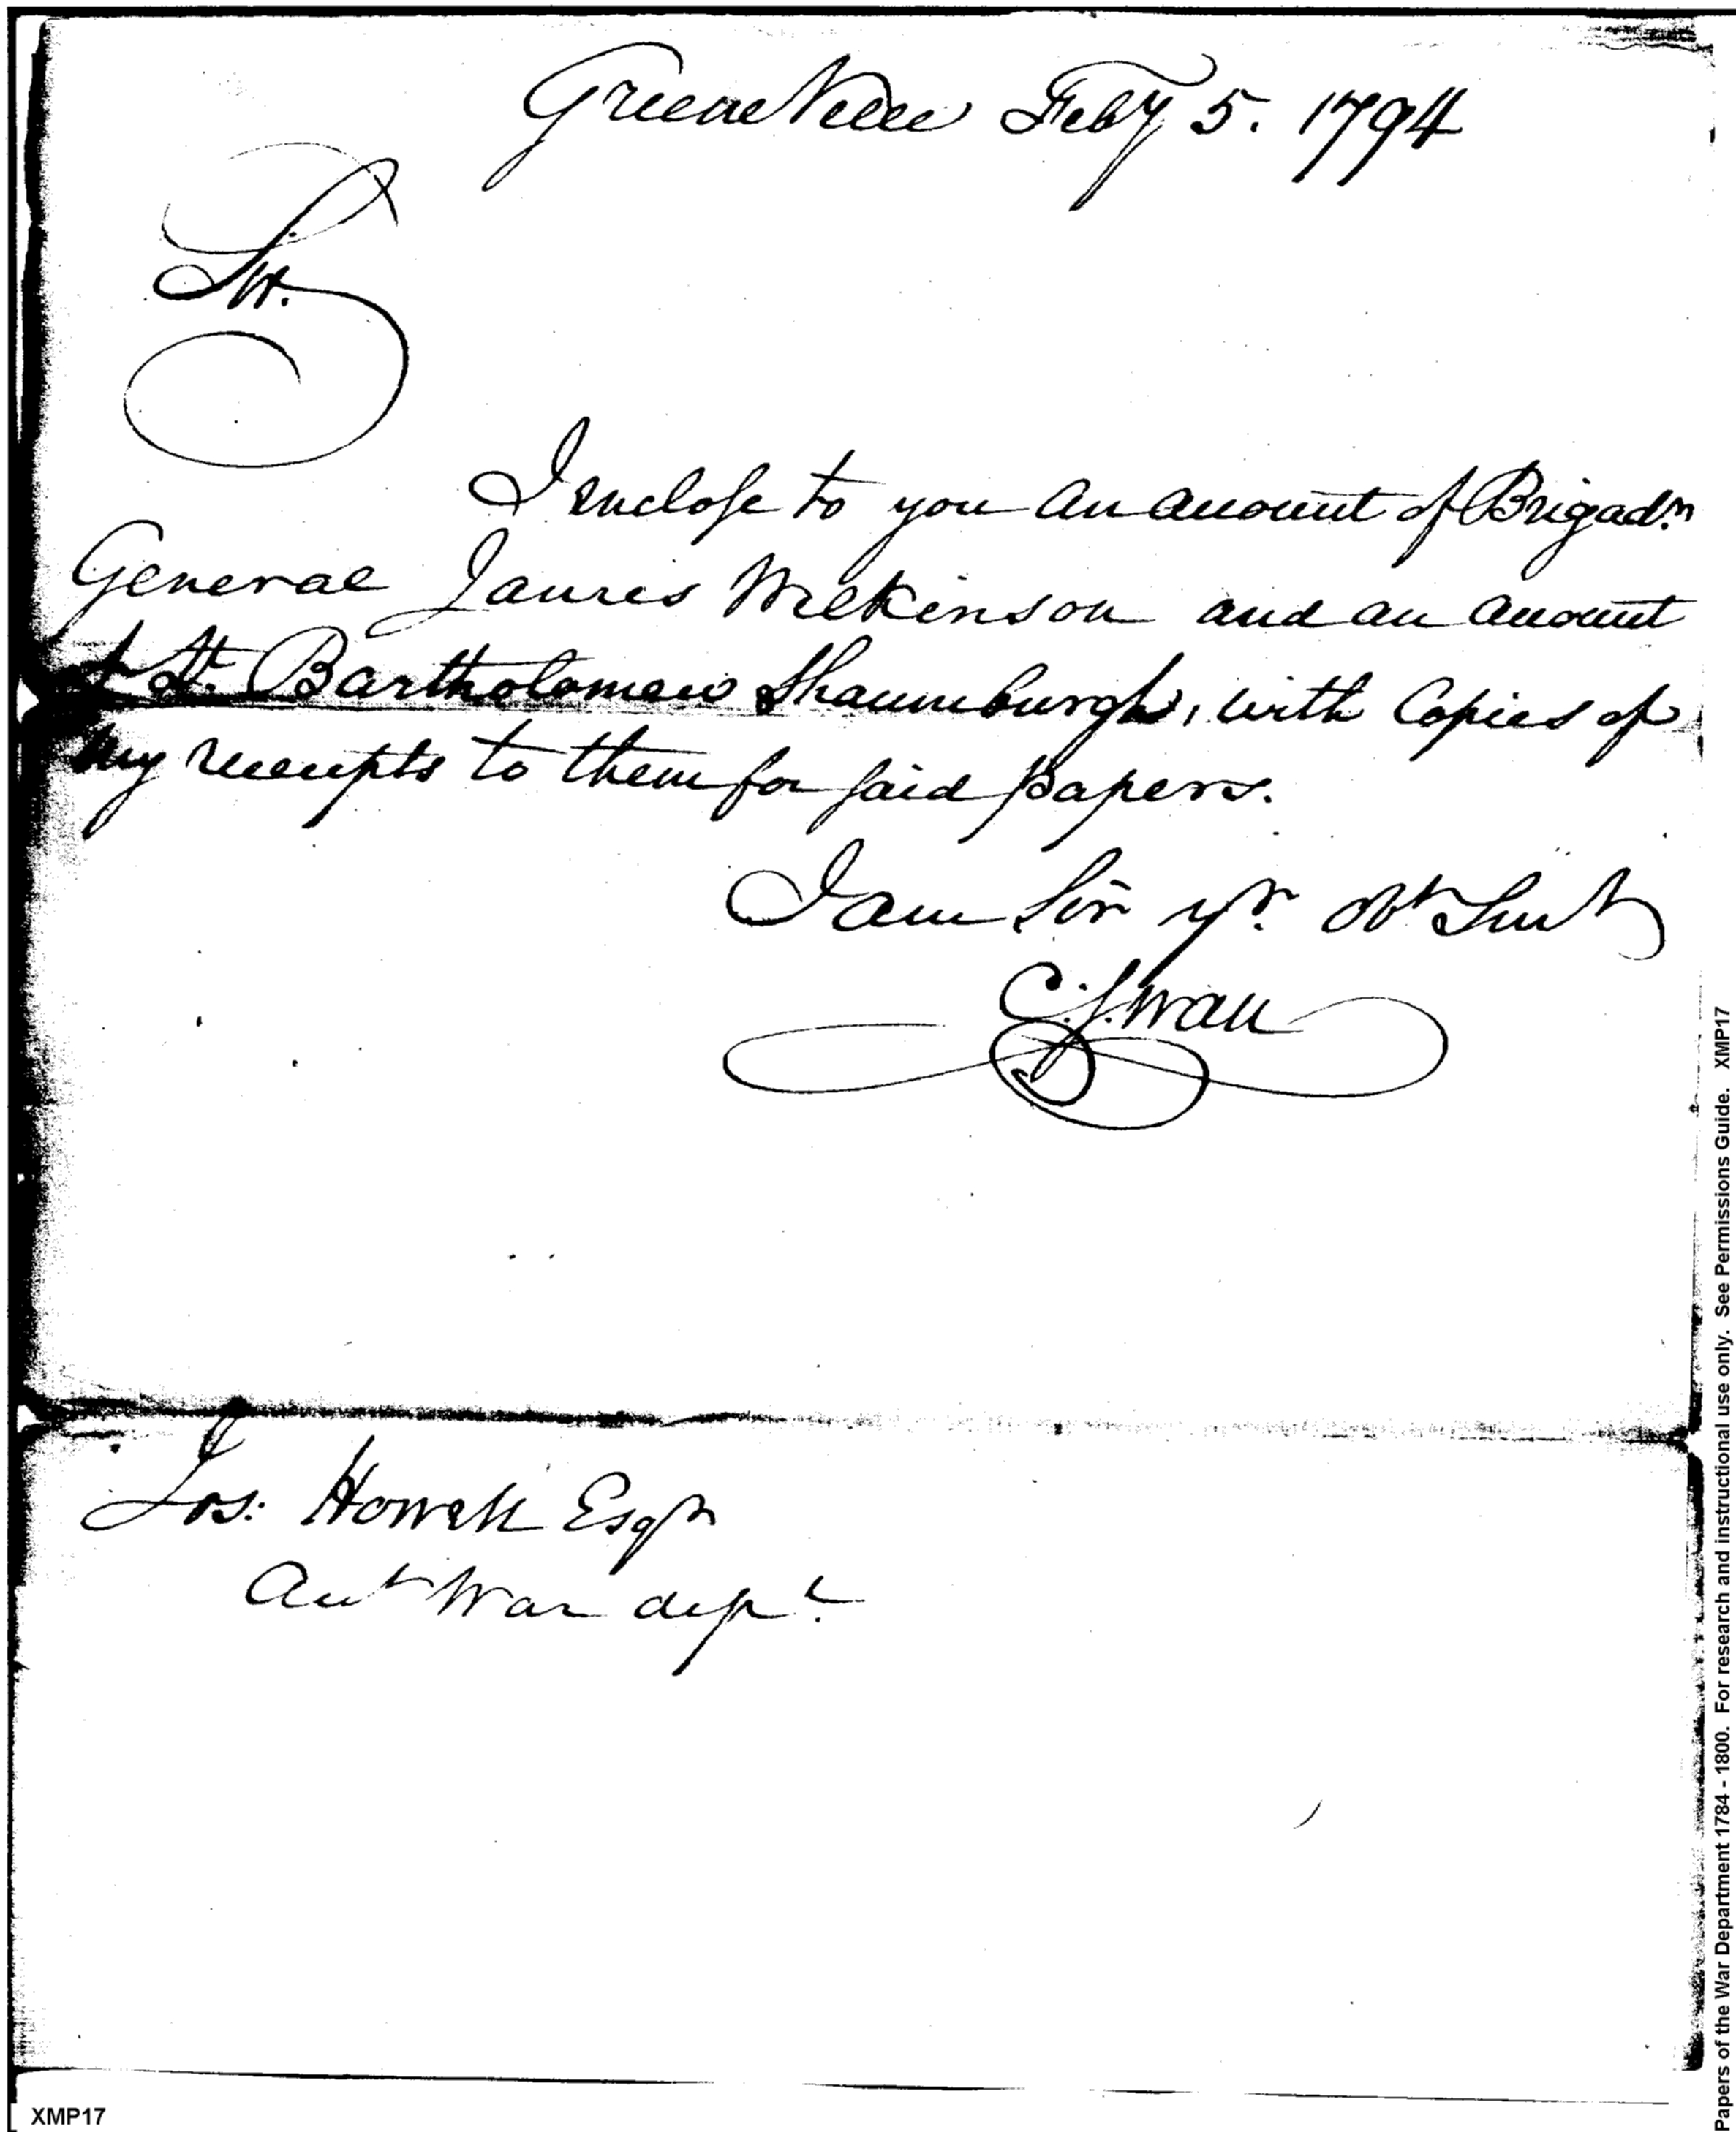 Greene Ville Feby 5. 1794
Sir.
I enclose to you an account of Brigadr.
General James Wilkinson and an account
of Lt. Bartholomew Shaumburgh, with Copies of
my receipts to them for said papers.
I am Sir yr. Obt Servt
C. Swan
Jos: Howell Esqr
Acct War dept.
XMP17
Papers of the War Department 1784 - 1800. For research and instructional use only. See Permissions Guide. XMP17